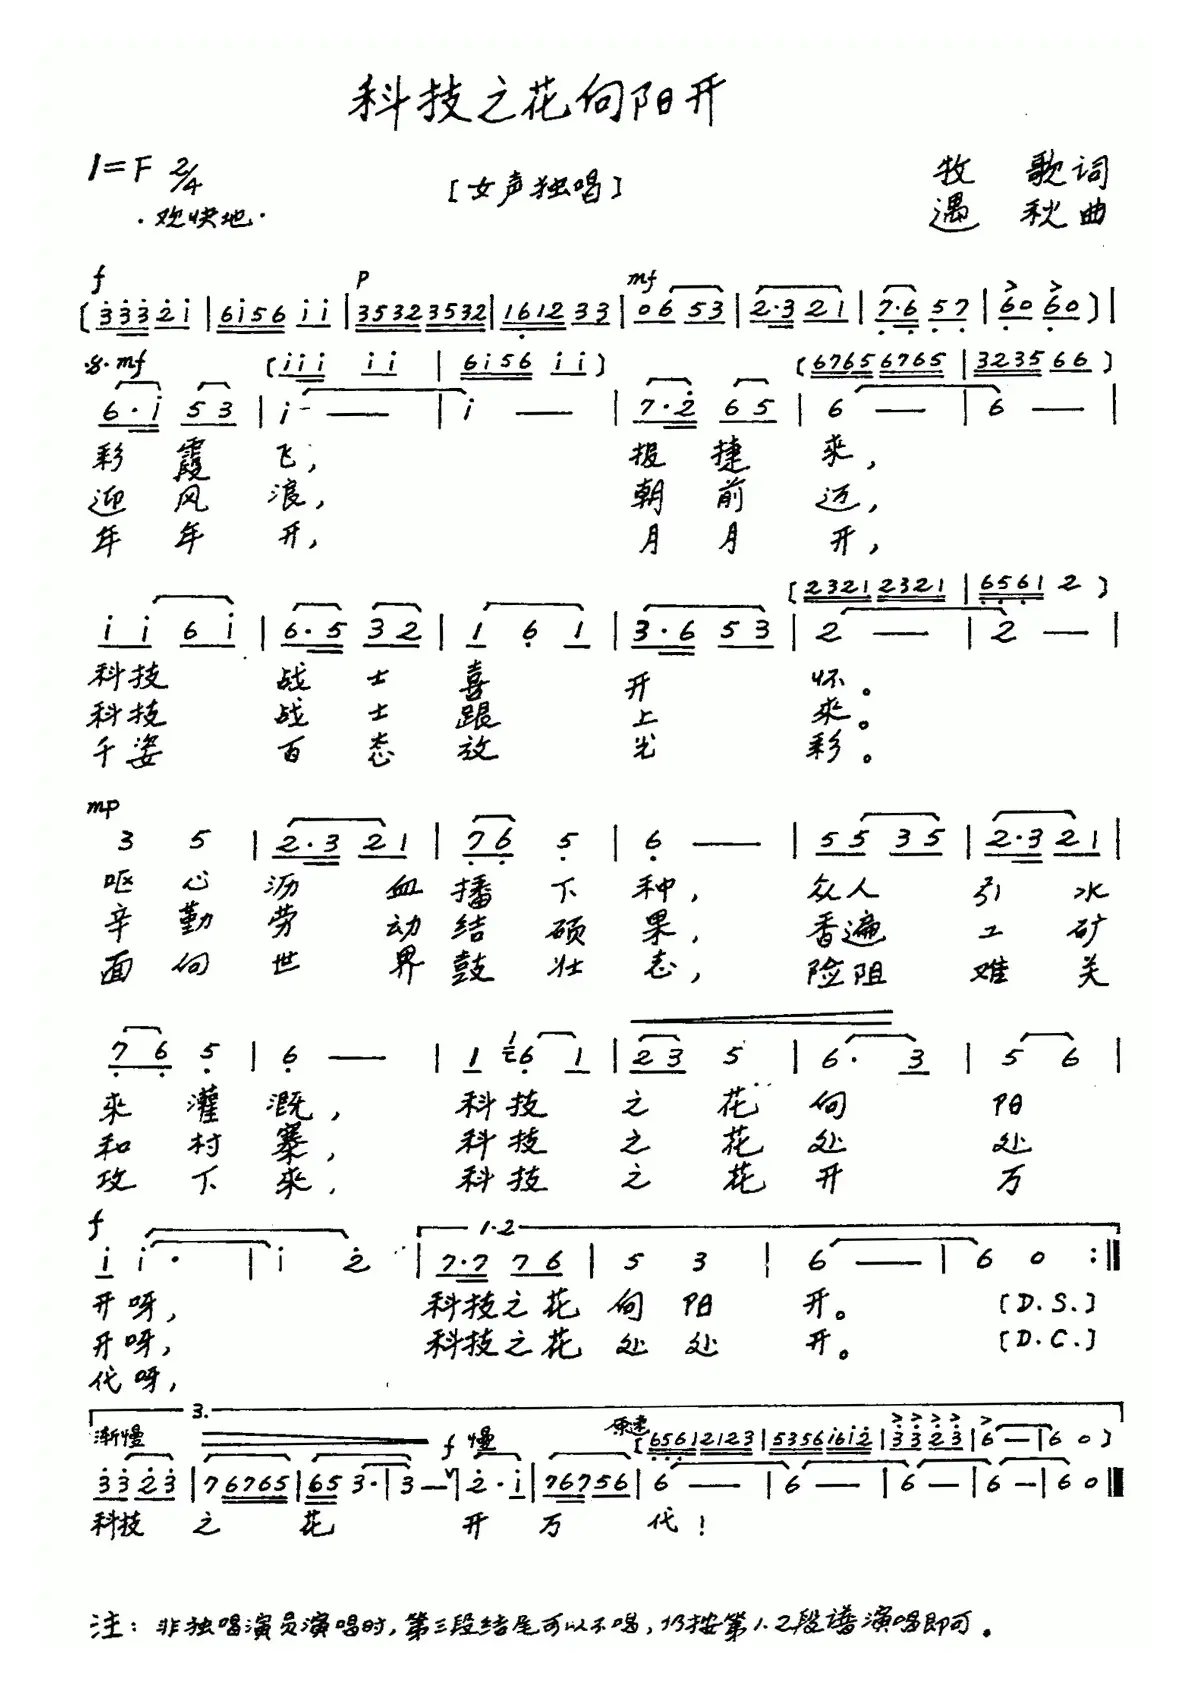 科技之花向阳开
1=F 2/4
·欢快地·
[女声独唱]
牧 歌词
遇 秋曲
f p mf
[3 3 3 2 i | 6 i 5 6 i i | 3532 3532 | 1612 3 3 | 0 6 5 3 | 2·3 2 1 | 7·6 5 7 | 6 0 6 0 ] |
·S· mf [i i i i i | 6 i 5 6 i i ] [6765 6765 | 3235 6 6 ]
6·i 5 3 | i — | i — | 7·2 6 5 | 6 — | 6 — |
彩 霞 飞, 报 捷 来,
迎 风 浪, 朝 前 迈,
年 年 开, 月 月 开,
[2321 2321 | 6561 2 ]
i i 6 i | 6·5 3 2 | 1 6 1 | 3·6 5 3 | 2 — | 2 — |
科技 战 士 喜 开 怀。
科技 战 士 跟 上 来。
千姿 百 态 放 光 彩。
mp
3 5 | 2·3 2 1 | 7 6 5 | 6 — | 5 5 3 5 | 2·3 2 1 |
呕 心 沥 血 播 下 种, 众人 引 水
辛 勤 劳 动 结 硕 果, 香遍 工 矿
面 向 世 界 鼓 壮 志, 险阻 难 关
7 6 5 | 6 — | 1 1 6 1 | 2 3 5 | 6· 3 | 5 6 |
来 灌 溉, 科 技 之 花 向 阳
和 村 寨, 科 技 之 花 处 处
攻 下 来, 科 技 之 花 开 万
f 1·2
i i· | i 2 | 7·7 7 6 | 5 3 | 6 — | 6 0 :‖
开呀, 科技之花 向 阳 开。 [D.S.]
开呀, 科技之花 处 处 开。 [D.C.]
代呀,
3.
渐慢 f 慢 原速 [6561 2123 | 5356 i6i2 | 3 3 2 3 | 6 — | 6 0 ]
3 3 2 3 | 7 6765 | 6 5 3· | 3 — V | 2· i | 76756 | 6 — | 6 — | 6 — | 6 — | 6 0 ‖
科技 之 花 开 万 代!
注: 非独唱演员演唱时, 第三段结尾可以不唱, 仍按第1.2段谱演唱即可。